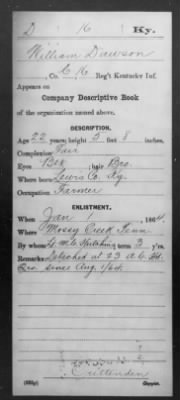 D K Ky.
William Dawson
, Co. C, K Reg't Kentucky Inf.
Appears on
Company Descriptive Book
of the organization named above.
DESCRIPTION.
Age 22 years; height 5 feet 8 inches.
Complexion Fair
Eyes Blk; hair Bro.
Where born Lewis Co. Ky.
Occupation Farmer
ENLISTMENT.
When Jan 1, 1864.
Where Mossy Creek Tenn
By whom term 3 y'rs.
Remarks: Detached at 23 A.C. Hd.
Qrs. since Aug. 1/64.
Crittenden
Copyist.